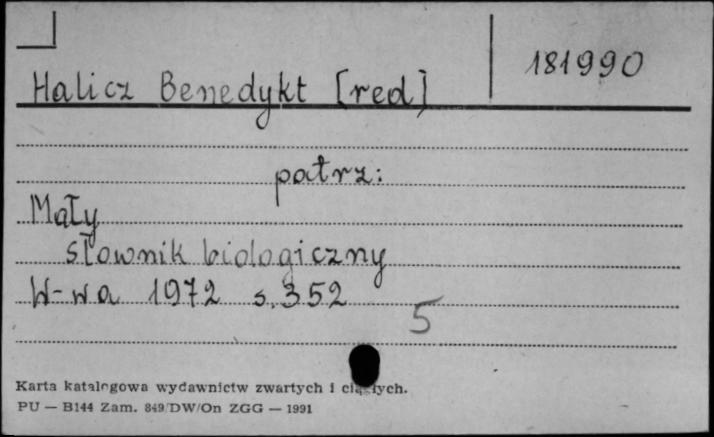 181990
Halicz Benedykt [red]
patrz:
Mały
słownik biologiczny
W-wa 1972 s. 352
5
Karta katalogowa wydawnictw zwartych i ciągłych.
PU — B144 Zam. 849/DW/On ZGG — 1991